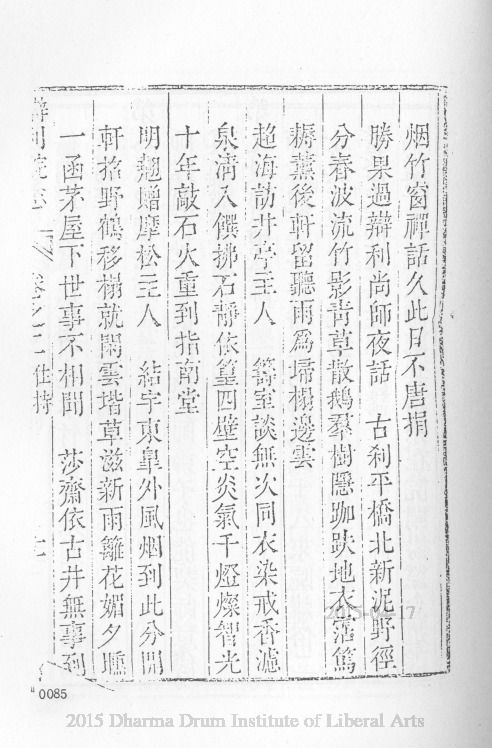 烟竹窗禪話久此日不唐捐
勝果過辯利尚師夜話　古刹平橋北新泥野徑
分春波流竹影靑草散鵝羣樹隱跏趺地衣霑篤
耨薰後軒留聽雨爲埽榻邊雲
超海訪井亭主人　籌室談無次同衣染戒香濾
泉淸入饌拂石靜依篁四壁空炎氣千燈燦智光
十年敲石火重到指南堂
明趐贈摩松主人　結宇東臯外風烟到此分開
軒招野鶴移榻就閑雲堦草滋新雨籬花媚夕曛
一函茅屋下世事不相聞　莎齋依古井無事到
卷之二住持
0085
2015 Dharma Drum Institute of Liberal Arts